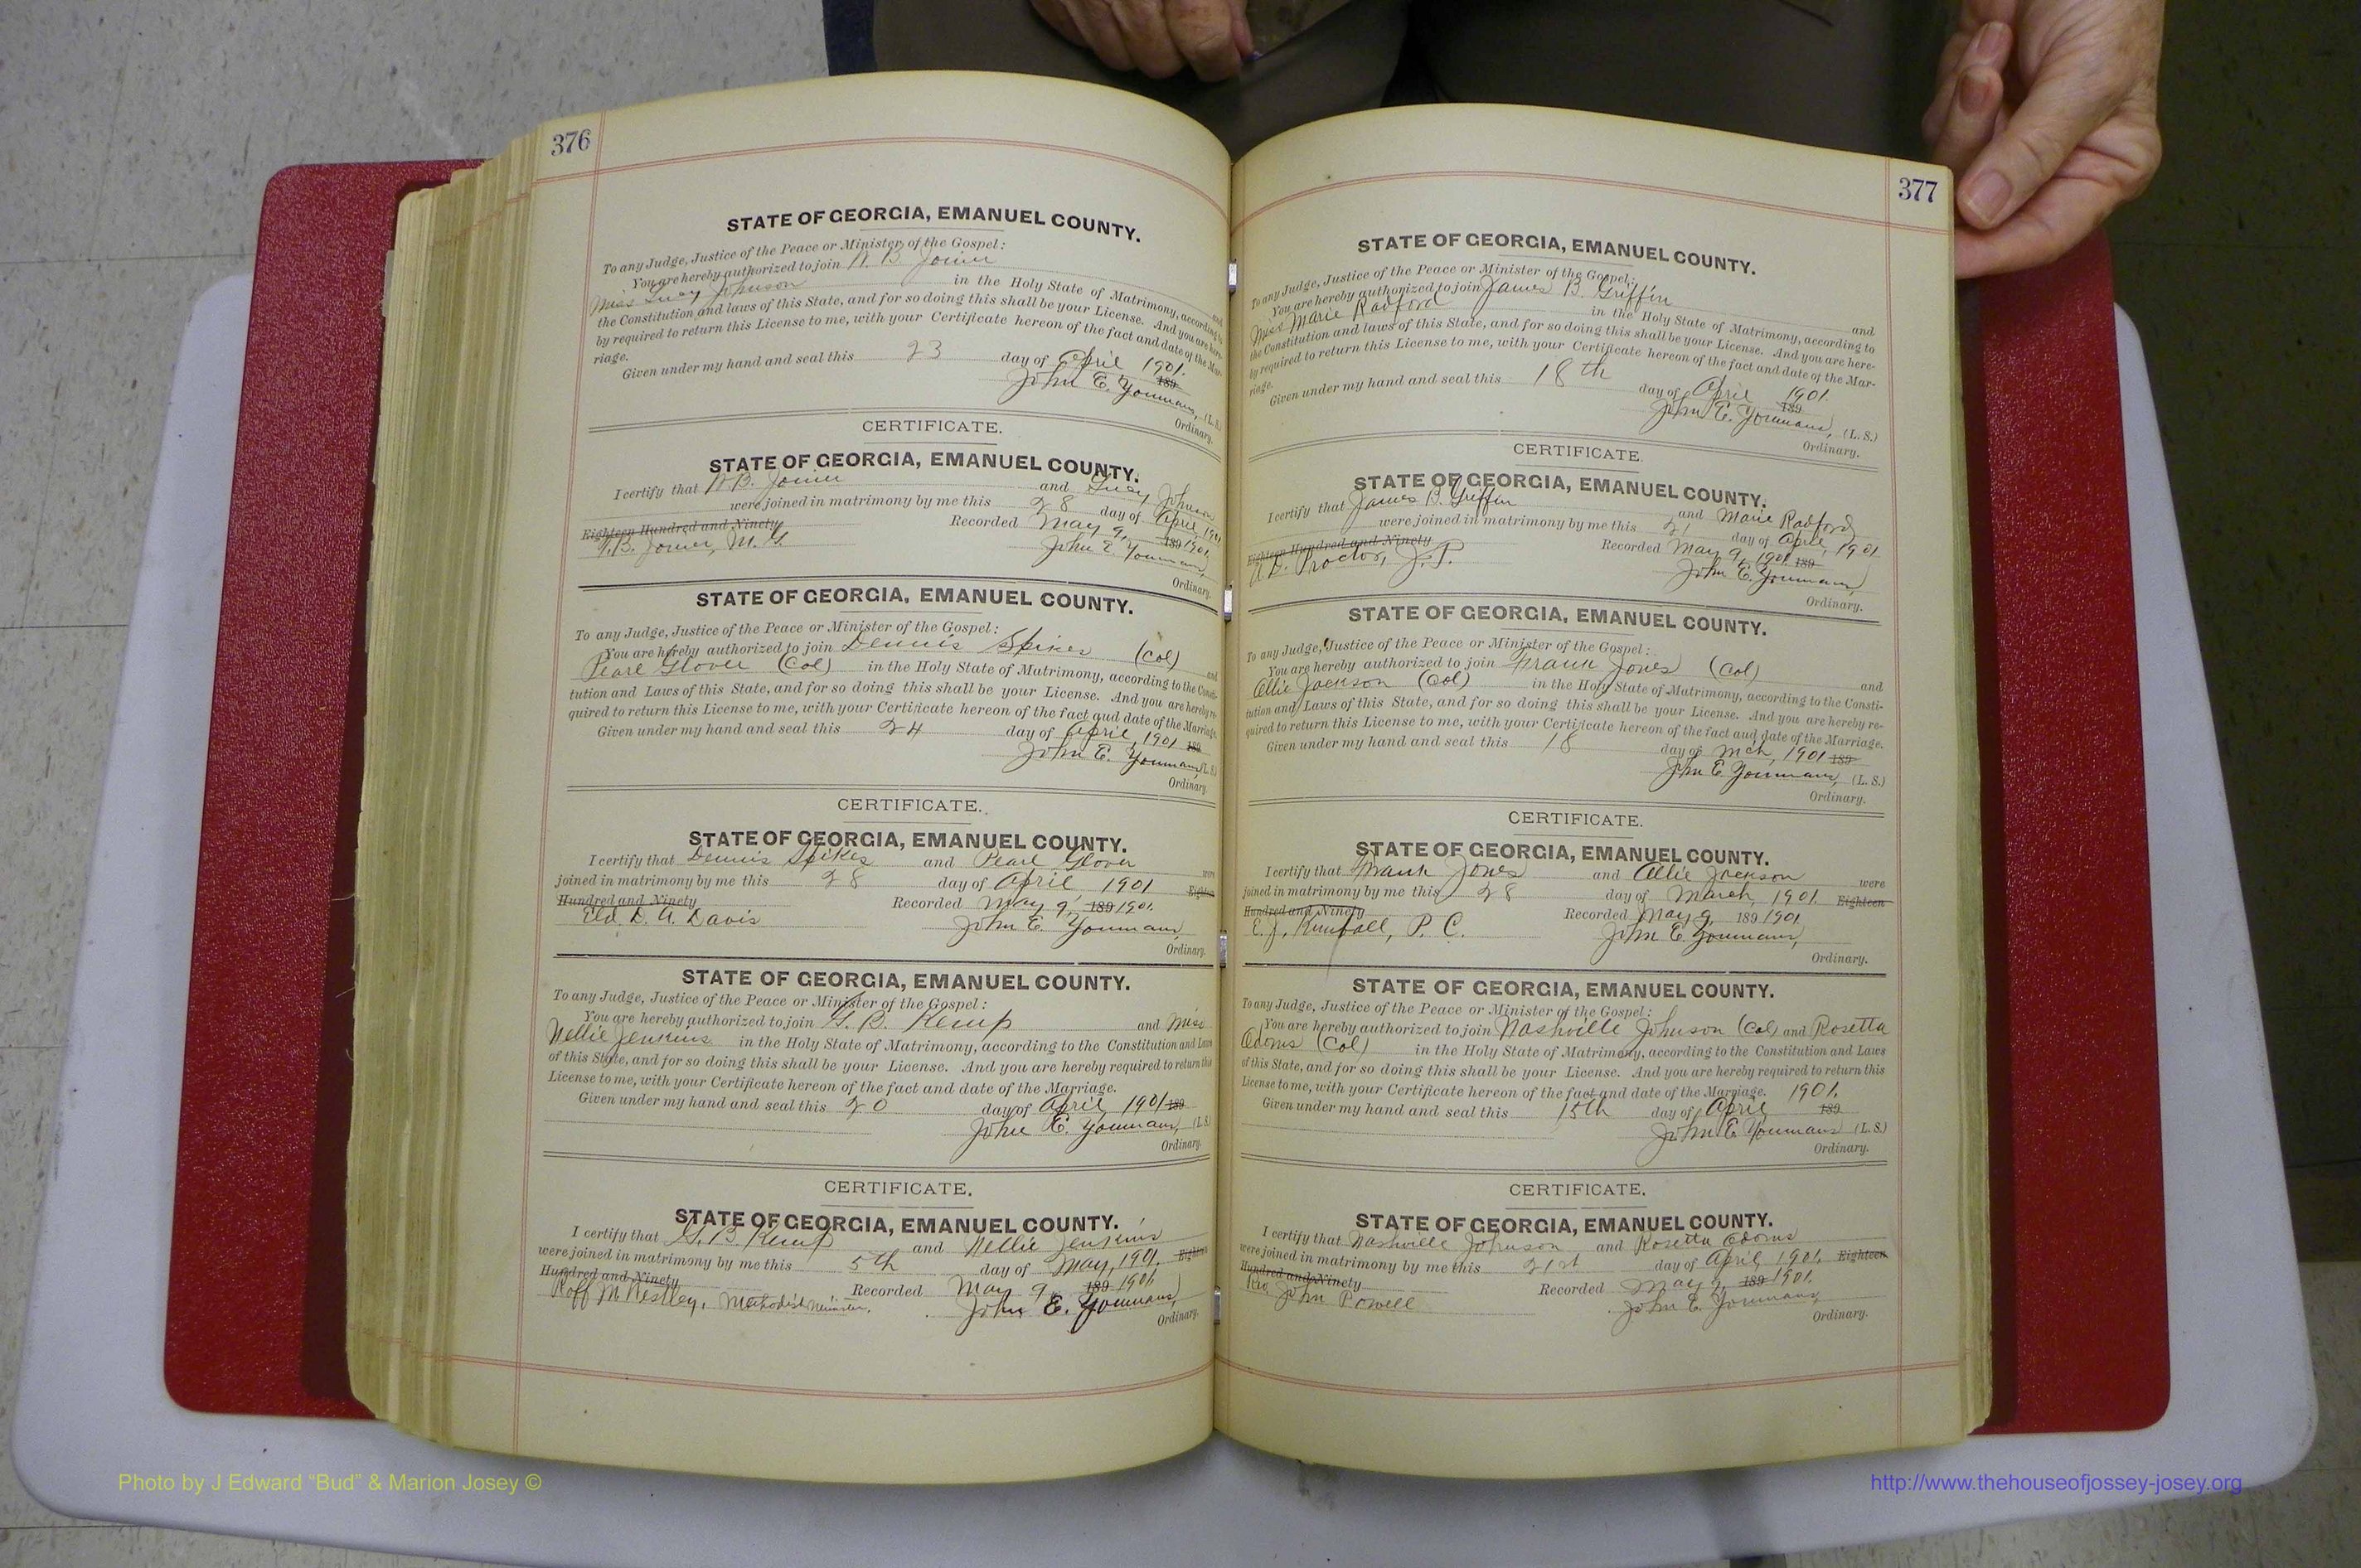 376
STATE OF GEORGIA, EMANUEL COUNTY.
To any Judge, Justice of the Peace or Minister of the Gospel:
You are hereby authorized to join B. Joiner and
Miss Lucy Johnson in the Holy State of Matrimony, according to
the Constitution and laws of this State, and for so doing this shall be your License. And you are here-
by required to return this License to me, with your Certificate hereon of the fact and date of the Mar-
riage.
Given under my hand and seal this 23 day of April 1901. 189
John E. Youmans, (L. S.)
Ordinary.
CERTIFICATE.
STATE OF GEORGIA, EMANUEL COUNTY.
I certify that B. Joiner and Lucy Johnson
were joined in matrimony by me this 28 day of April, 1901
Eighteen Hundred and Ninety Recorded May 9, 189 1901.
B. Joiner, M. G. John E. Youmans,
Ordinary.
STATE OF GEORGIA, EMANUEL COUNTY.
To any Judge, Justice of the Peace or Minister of the Gospel:
You are hereby authorized to join Dennis Spikes (Col) and
Pearl Glover (Col) in the Holy State of Matrimony, according to the Consti-
tution and Laws of this State, and for so doing this shall be your License. And you are hereby re-
quired to return this License to me, with your Certificate hereon of the fact and date of the Marriage.
Given under my hand and seal this 24 day of April, 1901 189
John E. Youmans, (L. S.)
Ordinary.
CERTIFICATE.
STATE OF GEORGIA, EMANUEL COUNTY.
I certify that Dennis Spikes and Pearl Glover were
joined in matrimony by me this 28 day of April 1901 Eighteen
Hundred and Ninety Recorded May 9, 189 1901.
Eld. D. A. Davis John E. Youmans,
Ordinary.
STATE OF GEORGIA, EMANUEL COUNTY.
To any Judge, Justice of the Peace or Minister of the Gospel:
You are hereby authorized to join G. B. Kemp and Miss
Nellie Jenkins in the Holy State of Matrimony, according to the Constitution and Laws
of this State, and for so doing this shall be your License. And you are hereby required to return this
License to me, with your Certificate hereon of the fact and date of the Marriage.
Given under my hand and seal this 20 day of April, 1901 189
John E. Youmans, (L. S.)
Ordinary.
CERTIFICATE.
STATE OF GEORGIA, EMANUEL COUNTY.
I certify that G. B. Kemp and Nellie Jenkins
were joined in matrimony by me this 5th day of May, 1901. Eighteen
Hundred and Ninety Recorded May 9, 189 1901.
Methodist Minister. John E. Youmans,
Ordinary.
377
STATE OF GEORGIA, EMANUEL COUNTY.
To any Judge, Justice of the Peace or Minister of the Gospel:
You are hereby authorized to join James B. Griffin and
Miss Marie Radford in the Holy State of Matrimony, according to
the Constitution and laws of this State, and for so doing this shall be your License. And you are here-
by required to return this License to me, with your Certificate hereon of the fact and date of the Mar-
riage.
Given under my hand and seal this 18th day of April 1901. 189
John E. Youmans, (L. S.)
Ordinary.
CERTIFICATE.
STATE OF GEORGIA, EMANUEL COUNTY.
I certify that James B. Griffin and Marie Radford
were joined in matrimony by me this 21 day of April, 1901
Eighteen Hundred and Ninety Recorded May 9, 1901. 189
Proctor, J. P. John E. Youmans,
Ordinary.
STATE OF GEORGIA, EMANUEL COUNTY.
To any Judge, Justice of the Peace or Minister of the Gospel:
You are hereby authorized to join Frank Jones (Col) and
Ollie Jackson (Col) in the Holy State of Matrimony, according to the Consti-
tution and Laws of this State, and for so doing this shall be your License. And you are hereby re-
quired to return this License to me, with your Certificate hereon of the fact and date of the Marriage.
Given under my hand and seal this 18 day of Mch, 1901 189
John E. Youmans, (L. S.)
Ordinary.
CERTIFICATE.
STATE OF GEORGIA, EMANUEL COUNTY.
I certify that Frank Jones and Ollie Jackson were
joined in matrimony by me this 28 day of March, 1901. Eighteen
Hundred and Ninety Recorded May 9, 189 1901
E. J. Kimball, P. C. John E. Youmans,
Ordinary.
STATE OF GEORGIA, EMANUEL COUNTY.
To any Judge, Justice of the Peace or Minister of the Gospel:
You are hereby authorized to join Nashville Johnson (Col) and Rosetta
Odoms (Col) in the Holy State of Matrimony, according to the Constitution and Laws
of this State, and for so doing this shall be your License. And you are hereby required to return this
License to me, with your Certificate hereon of the fact and date of the Marriage. 1901.
Given under my hand and seal this 15th day of April 189
John E. Youmans (L. S.)
Ordinary.
CERTIFICATE.
STATE OF GEORGIA, EMANUEL COUNTY.
I certify that Nashville Johnson and Rosetta Odoms
were joined in matrimony by me this 21st day of April, 1901. Eighteen
Hundred and Ninety Recorded May 9, 189 1901.
Rev. John Powell John E. Youmans,
Ordinary.
Photo by J Edward “Bud” & Marion Josey ©
http://www.thehouseofjossey-josey.org